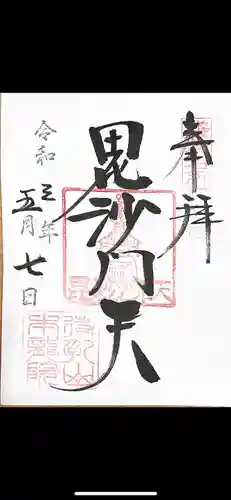 奉拝
毘沙門天
令和三年
五月七日